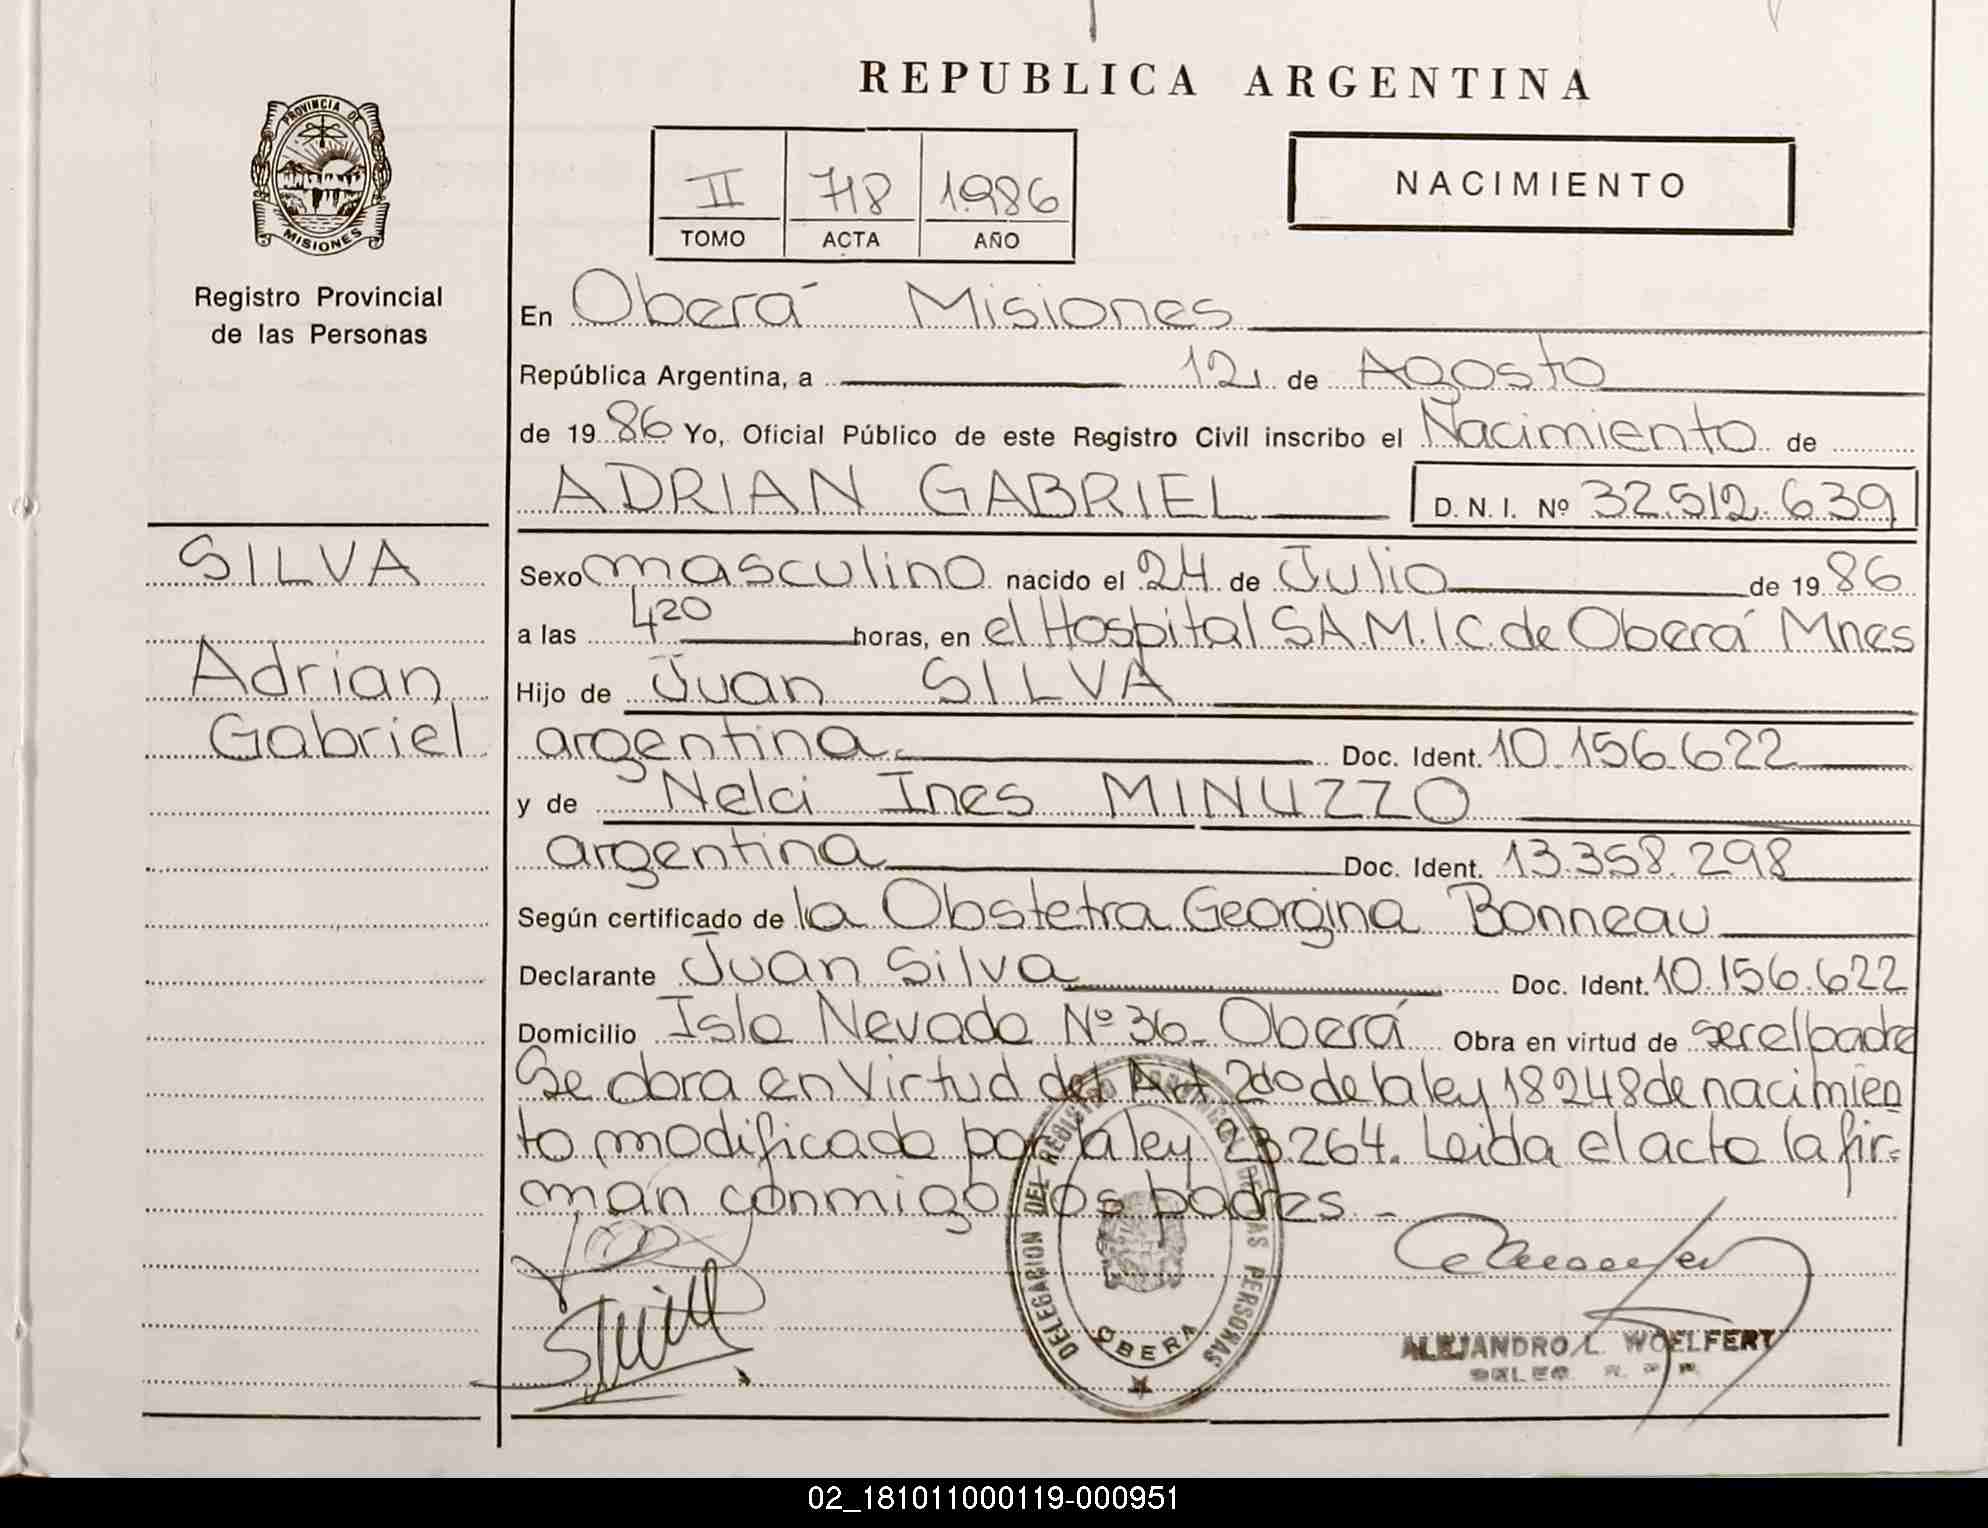 REPUBLICA ARGENTINA
PROVINCIA DE
MISIONES
Registro Provincial
de las Personas
II 718 1986
TOMO ACTA AÑO
NACIMIENTO
En Oberá Misiones
República Argentina, a 12 de Agosto
de 1986 Yo, Oficial Público de este Registro Civil inscribo el Nacimiento de
ADRIAN GABRIEL D. N. I. Nº 32.512.639
SILVA
Adrian
Gabriel
Sexo masculino nacido el 24 de Julio de 1986
a las 4 20 horas, en el Hospital S.A.M.I.C. de Oberá Mnes
Hijo de Juan SILVA
argentina Doc. Ident. 10.156.622
y de Nelci Ines MINUZZO
argentina Doc. Ident. 13.358.298
Según certificado de la Obstetra Georgina Bonneau
Declarante Juan Silva Doc. Ident. 10.156.622
Domicilio Isla Nevado Nº 36. Oberá Obra en virtud de ser el padre
Se obra en Virtud del Art 2do de la ley 18248 de nacimien
to modificado por la ley 23.264. Leida el acta la fir=
man conmigo los padres -
DELEGACION DEL REGISTRO PROVINCIAL DE LAS PERSONAS
OBERA
ALEJANDRO L. WOELFERT
DELEG. R. P. P.
02_181011000119-000951